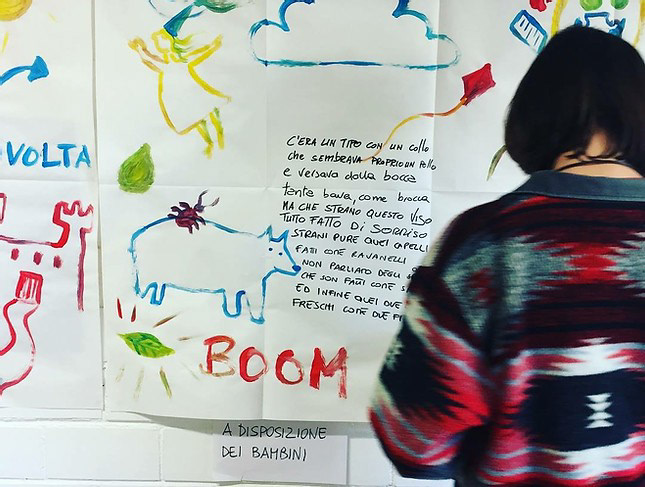 VOLTA
C'ERA UN TIPO CON UN COLLO
che SEMBRAVA PROPRIO UN POLLO
e versava dalla bocca
tanta bava, come brocca
MA CHE STRANO QUESTO VISO
TUTTO FATTO DI SORRISO
STRANI PURE QUEI CAPELLI
FATTI COME RAVANELLI
NON PARLIAMO DEGLI
CHE SON FATTI COME
ED INFINE QUEI DUE
FRESCHI COME DUE
BOOM
A DISPOSIZIONE
DEI BAMBINI